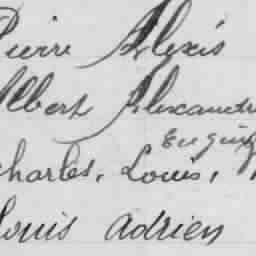 Pierre Alexis
Albert Alexandre
Eugène
Charles, Louis,
Louis Adrien